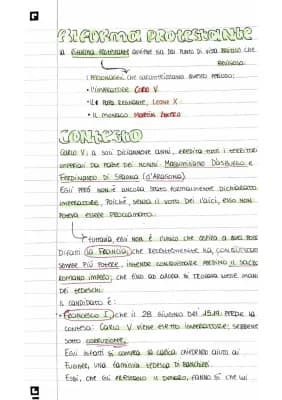 RIFORMA PROTESTANTE
La RIFORMA PROTESTANTE AVVIENE SIA DAL PUNTO DI VISTA POLITICO CHE
RELIGIOSO.
I PERSONAGGI CHE CARATTERIZZANO QUESTO PERIODO:
• L'IMPERATORE CARLO V
• IL PAPA REGNANTE, LEONE X
• IL MONACO MARTIN LUTERO
CONTESTO
CARLO V, A SOLI DICIANNOVE ANNI, EREDITA TUTTI I TERRITORI
IMPERIALI DA PARTE DEI NONNI: MASSIMILIANO D'ASBURGO E
FERDINANDO DI SPAGNA (D'ARAGONA).
EGLI PERÒ NON È ANCORA STATO FORMALMENTE DICHIARATO
IMPERATORE, POICHÈ, SENZA IL VOTO DEI LAICI, ESSO NON
POTEVA ESSERE PROCLAMATO.
TUTTAVIA, EGLI NON È L'UNICO CHE ASPIRA A QUEL POSTO
DIFATTI LA FRANCIA, CHE RECENTEMENTE HA CONQUISTATO
SEMPRE PIÙ POTERE, INTENDE CONQUISTARE PERSINO IL SACRO
ROMANO IMPERO, CHE FINO AD ALLORA SI TROVAVA NELLE MANI
DEI TEDESCHI.
IL CANDIDATO È:
• FRANCESCO I, CHE IL 28 GIUGNO DEL 1519 PERDE LA
CONTESA: CARLO V VIENE ELETTO IMPERATORE, SEBBENE
SOTTO CORRUZIONE.
EGLI INFATTI SI COMPRA LA CARICA CHIEDENDO AIUTO AI
FUGGER, UNA FAMIGLIA TEDESCA DI BANCHIERI.
ESSI, CHE GLI PRESTANO IL DENARO, FANNO SÌ CHE LUI